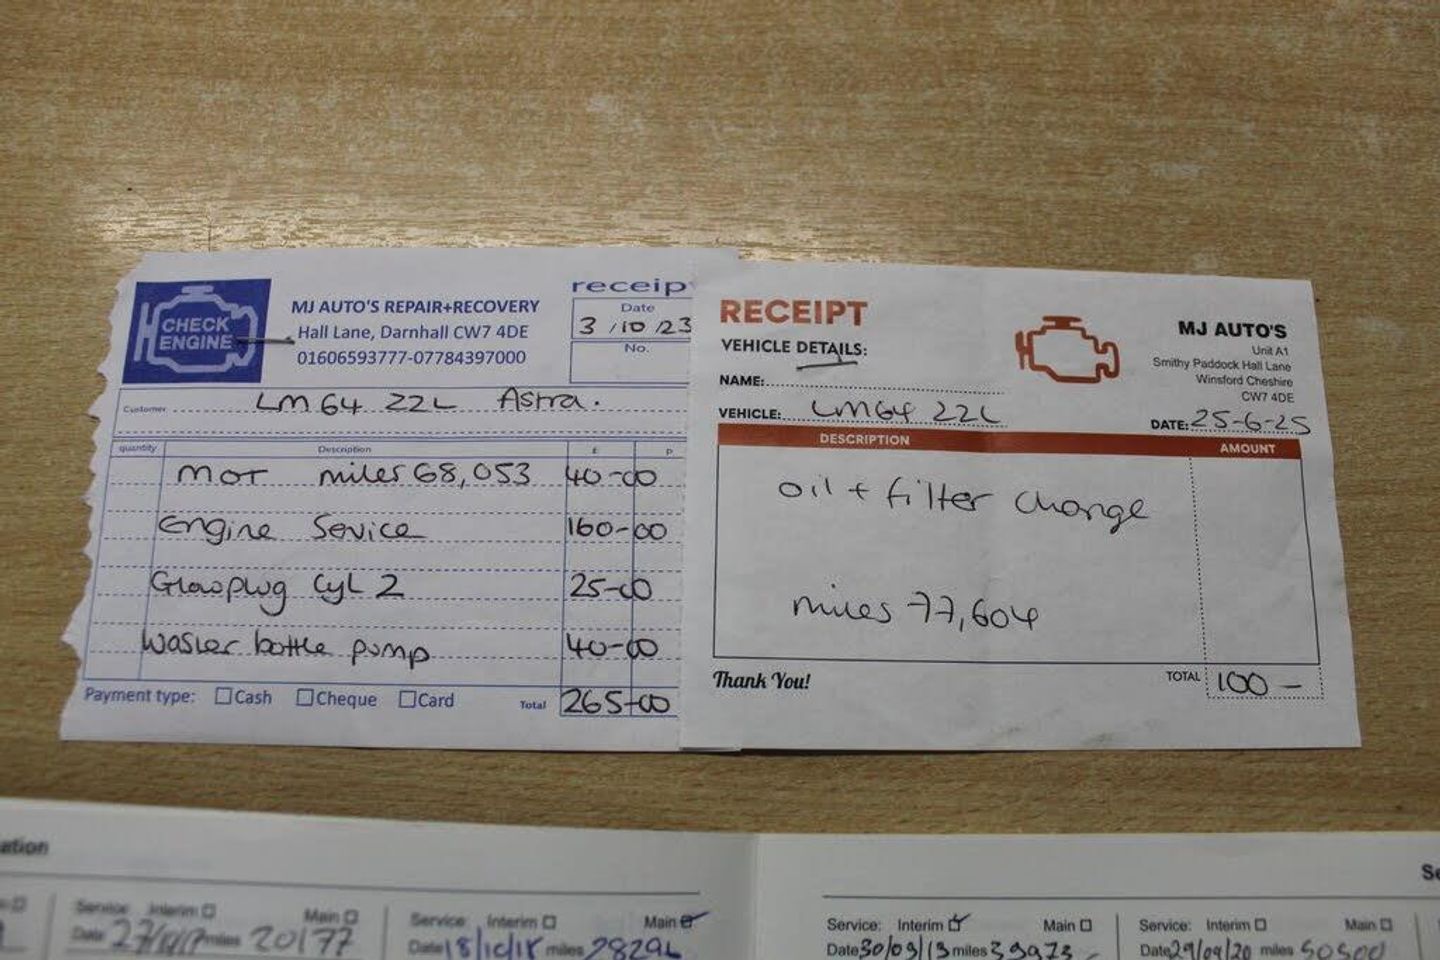 CHECK
ENGINE
MJ AUTO'S REPAIR+RECOVERY
Hall Lane, Darnhall CW7 4DE
01606593777-07784397000
receip
Date
3/10/23
No.
Customer LM64 ZZL Astra.
quantity Description £ P
MOT miles 68,053 40-00
Engine Service 160-00
Glowplug Cyl 2 25-00
Washer bottle pump 40-00
Payment type: Cash Cheque Card Total 265-00
RECEIPT
VEHICLE DETAILS:
NAME:
VEHICLE: LM64 ZZL
MJ AUTO'S
Unit A1
Smithy Paddock Hall Lane
Winsford Cheshire
CW7 4DE
DATE: 25-6-25
DESCRIPTION AMOUNT
oil + filter change
miles 77,604
Thank You!
TOTAL 100 -
ation
Service Interim Main
Date miles 20177
Service: Interim Main
Date 18/10/18 miles
Service: Interim Main
Date 30/09/19 miles
Service: Interim Main
Date 29/09/20 miles 50500